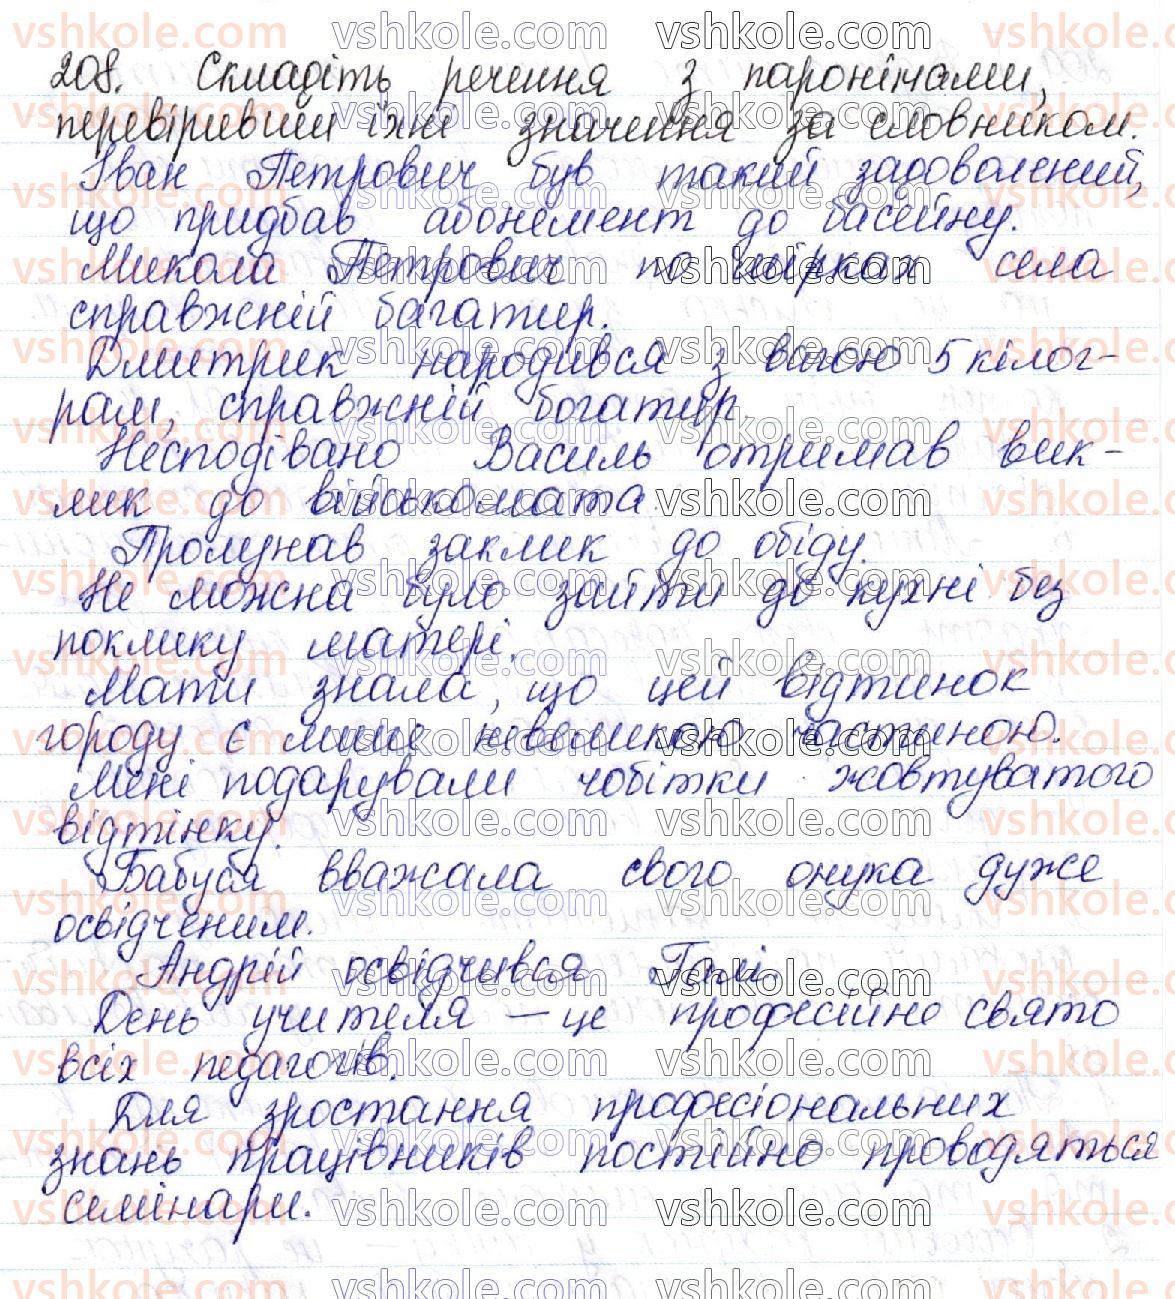 208. Складіть речення з паронімами,
перевіривши їхні значення за словником.
Іван Петрович був такий задоволений,
що придбав абонемент до басейну.
Микола Петрович по мірках села
справжній багатир.
Дмитрик народився з вагою 5 кілог-
рам, справжній богатир.
Несподівано Василь отримав вик-
лик до військомата.
Пролунав заклик до обіду.
Не можна було зайти до кухні без
поклику матері.
Мати знала, що цей відтинок
городу є лише невеликою частиною.
Мені подарували чобітки жовтуватого
відтінку.
Бабуся вважала свого онука дуже
освідченим.
Андрій освідчився Галі.
День учителя — це професійне свято
всіх педагогів.
Для зростання професіональних
знань працівників постійно проводяться
семінари.
vshkole.com